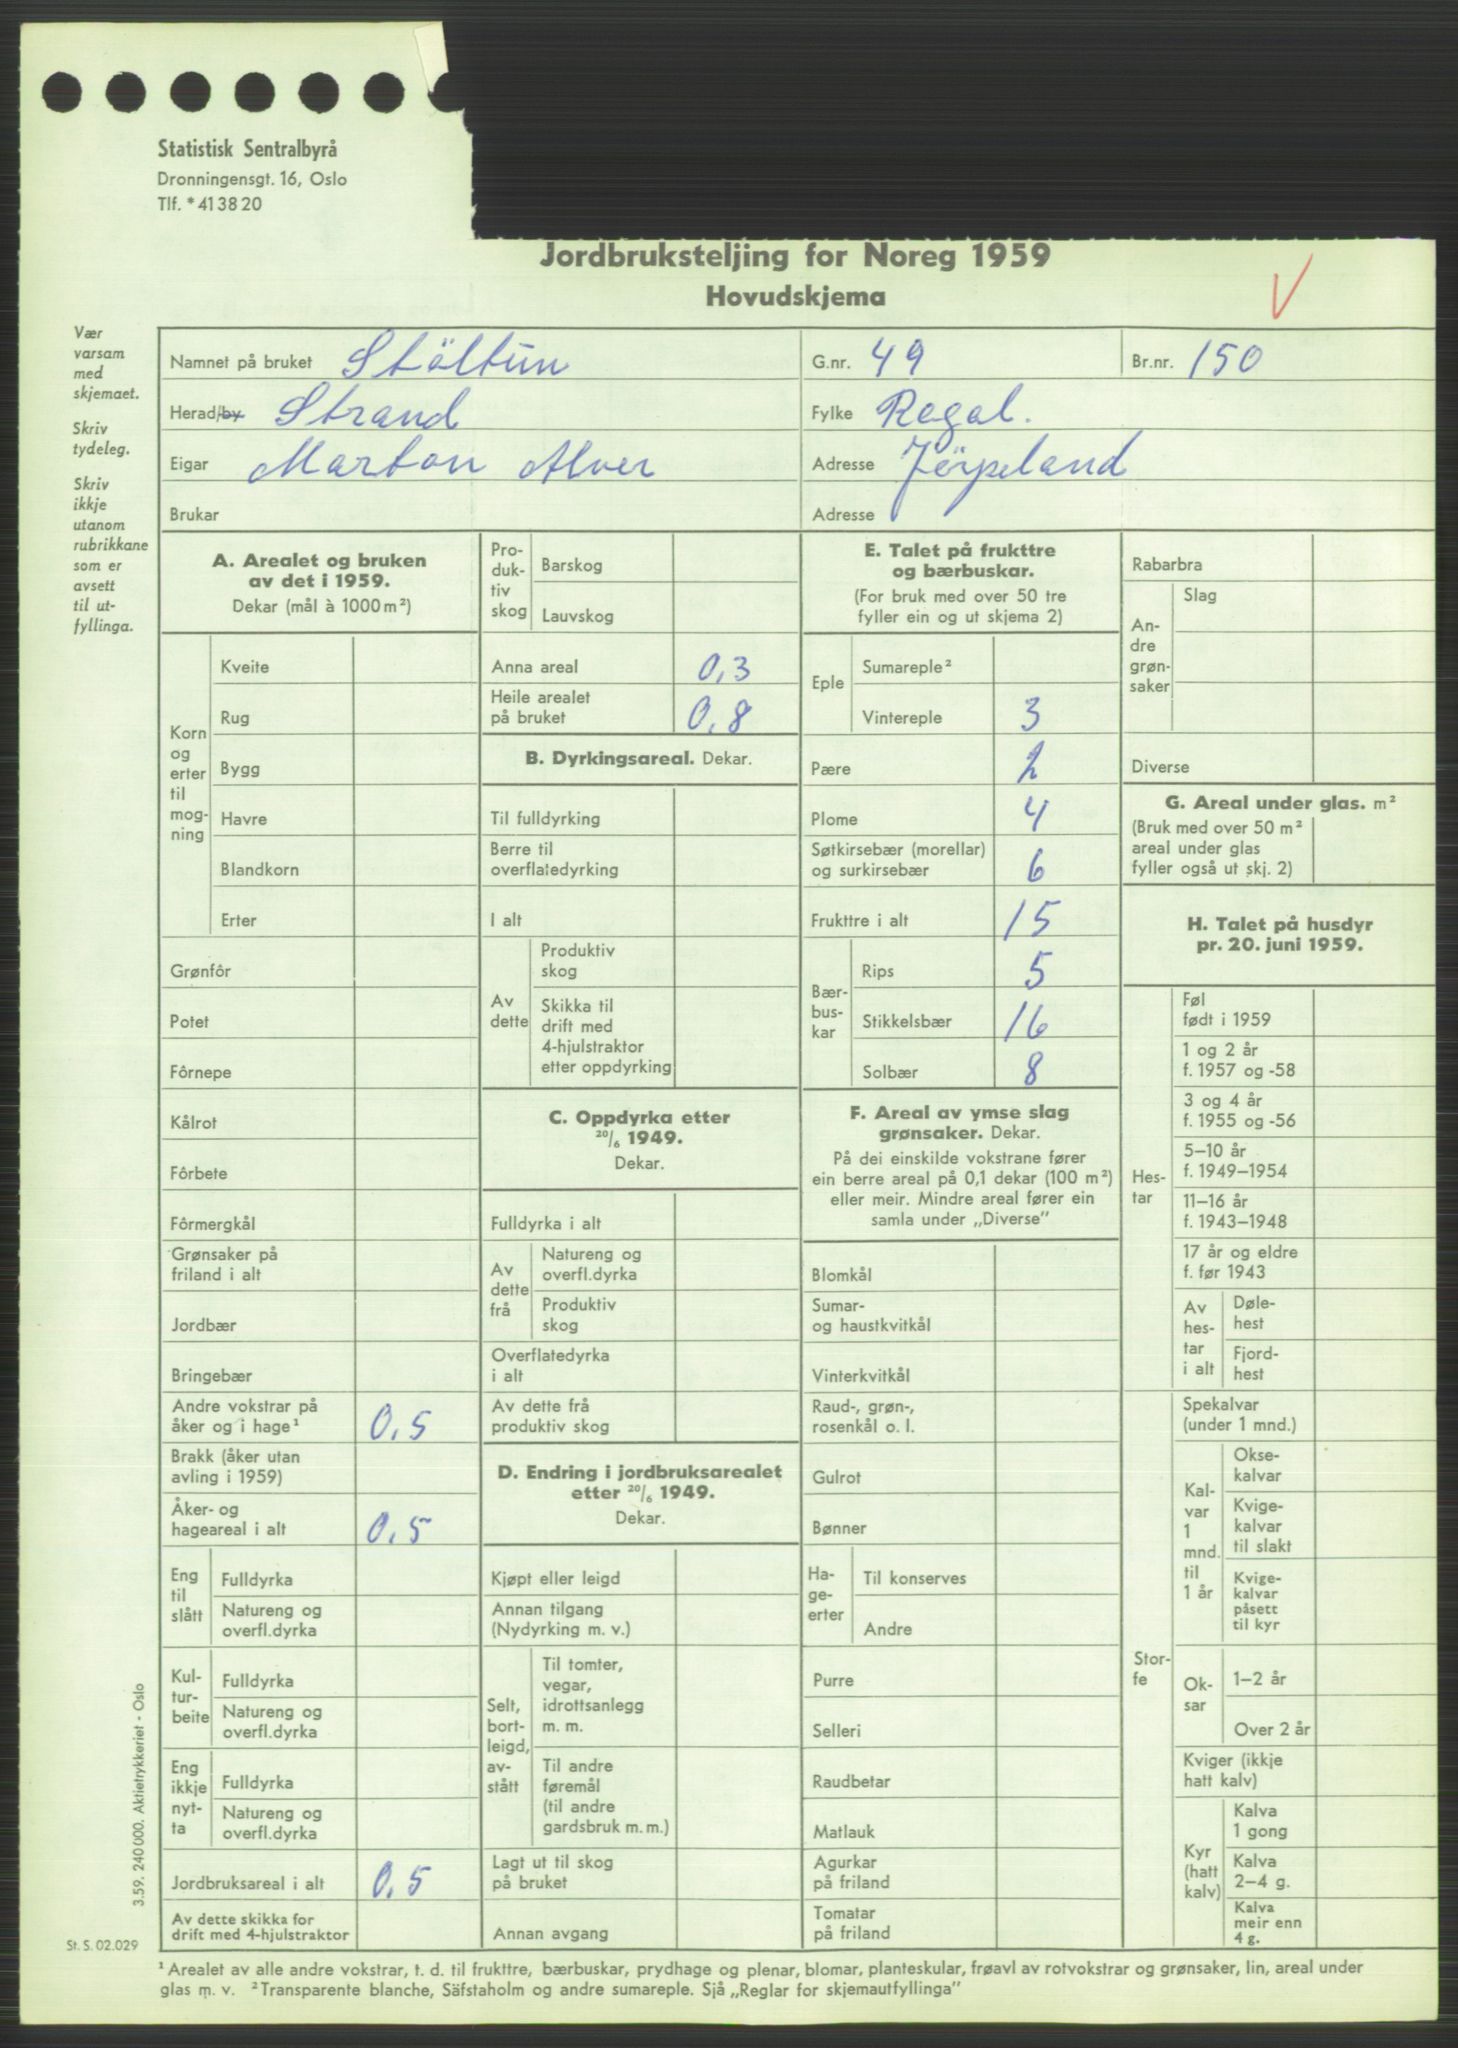 Statistisk Sentralbyrå
Dronningensgt. 16, Oslo
Tlf. * 41 38 20
Jordbruksteljing for Noreg 1959
Hovudskjema
V
Vær
varsam
med
skjemaet.
Skriv
tydeleg.
Skriv
ikkje
utanom
rubrikkane
som er
avsett
til ut-
fyllinga.
Namnet på bruket Stöltun G.nr. 49 Br.nr. 150
Herad/by Strand Fylke Rogal.
Eigar Marton Alver Adresse Jörpeland
Brukar Adresse
A. Arealet og bruken
av det i 1959.
Dekar (mål à 1000 m²)
Korn
og
erter
til
mog-
ning
Kveite
Rug
Bygg
Havre
Blandkorn
Erter
Grønfôr
Potet
Fôrnepe
Kålrot
Fôrbete
Fôrmergkål
Grønsaker på
friland i alt
Jordbær
Bringebær
Andre vokstrar på
åker og i hage¹ 0,5
Brakk (åker utan
avling i 1959)
Åker- og
hageareal i alt 0,5
Eng
til
slått
Fulldyrka
Natureng og
overfl.dyrka
Kul-
tur-
beite
Fulldyrka
Natureng og
overfl.dyrka
Eng
ikkje
nyt-
ta
Fulldyrka
Natureng og
overfl.dyrka
Jordbruksareal i alt 0,5
Av dette skikka for
drift med 4-hjulstraktor
Pro-
duk-
tiv
skog
Barskog
Lauvskog
Anna areal 0,3
Heile arealet
på bruket 0,8
B. Dyrkingsareal. Dekar.
Til fulldyrking
Berre til
overflatedyrking
I alt
Av
dette
Produktiv
skog
Skikka til
drift med
4-hjulstraktor
etter oppdyrking
C. Oppdyrka etter
20/6 1949.
Dekar.
Fulldyrka i alt
Av
dette
frå
Natureng og
overfl.dyrka
Produktiv
skog
Overflatedyrka
i alt
Av dette frå
produktiv skog
D. Endring i jordbruksarealet
etter 20/6 1949.
Dekar.
Kjøpt eller leigd
Annan tilgang
(Nydyrking m. v.)
Selt,
bort-
leigd,
av-
stått
Til tomter,
vegar,
idrottsanlegg
m. m.
Til andre
føremål
(til andre
gardsbruk m. m.)
Lagt ut til skog
på bruket
Annan avgang
E. Talet på frukttre
og bærbuskar.
(For bruk med over 50 tre
fyller ein og ut skjema 2)
Eple
Sumareple²
Vintereple 3
Pære 2
Plome 4
Søtkirsebær (morellar)
og surkirsebær 6
Frukttre i alt 15
Bær-
bus-
kar
Rips 5
Stikkelsbær 16
Solbær 8
F. Areal av ymse slag
grønsaker. Dekar.
På dei einskilde vokstrane fører
ein berre areal på 0,1 dekar (100 m²)
eller meir. Mindre areal fører ein
samla under „Diverse”
Blomkål
Sumar-
og haustkvitkål
Vinterkvitkål
Raud-, grøn-,
rosenkål o. l.
Gulrot
Bønner
Ha-
ge-
erter
Til konserves
Andre
Purre
Selleri
Raudbetar
Matlauk
Agurkar
på friland
Tomatar
på friland
Rabarbra
An-
dre
grøn-
saker
Slag
Diverse
G. Areal under glas. m²
(Bruk med over 50 m²
areal under glas
fyller også ut skj. 2)
H. Talet på husdyr
pr. 20. juni 1959.
Hes-
tar
Føl
født i 1959
1 og 2 år
f. 1957 og -58
3 og 4 år
f. 1955 og -56
5–10 år
f. 1949–1954
11–16 år
f. 1943–1948
17 år og eldre
f. før 1943
Av
hes-
tar
i alt
Døle-
hest
Fjord-
hest
Stor-
fe
Spekalvar
(under 1 mnd.)
Kal-
var
1
mnd.
til
1 år
Okse-
kalvar
Kvige-
kalvar
til slakt
Kvige-
kalvar
påsett
til kyr
Ok-
sar
1–2 år
Over 2 år
Kviger (ikkje
hatt kalv)
Kyr
(hatt
kalv)
Kalva
1 gong
Kalva
2–4 g.
Kalva
meir enn
4 g.
3.59. 240 000. Aktietrykkeriet - Oslo
St. S. 02.029
¹ Arealet av alle andre vokstrar, t. d. til frukttre, bærbuskar, prydhage og plenar, blomar, planteskular, frøavl av rotvokstrar og grønsaker, lin, areal under
glas m. v. ² Transparente blanche, Säfstaholm og andre sumareple. Sjå „Reglar for skjemautfyllinga”